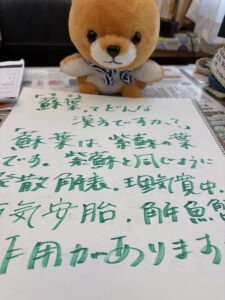 「蘇葉ってどんな
漢方ですか？」
「蘇葉は、紫蘇の葉
です。紫蘇と同じように
発散解表、理気寛中、
行気安胎、解魚蟹
作用があります